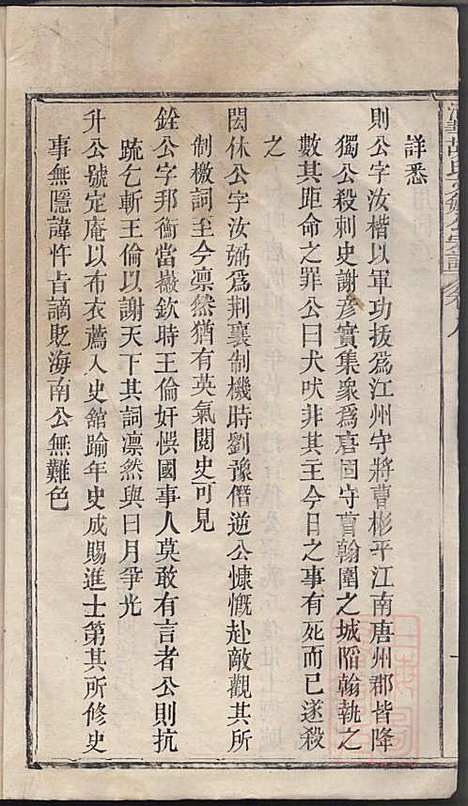 詳悉
則公字汝楷以軍功授爲江州守將曹彬平江南唐州郡皆降
獨公殺刺史謝彥實集衆爲唐固守曹翰圍之城陷翰執之
數其距命之罪公曰犬吠非其主今日之事有死而已遂殺
之
閎休公字汝弼爲荆襄制機時劉豫僭逆公慷慨赴敵觀其所
制檄詞至今凛然猶有英氣閱史可見
銓公字邦衡當徽欽時王倫奸悞國事人莫敢有言者公則抗
疏乞斬王倫以謝天下其詞凛然與日月爭光
升公號定庵以布衣薦入史館踰年史成賜進士第其所修史
事無隱諱忤旨謫貶海南公無難色